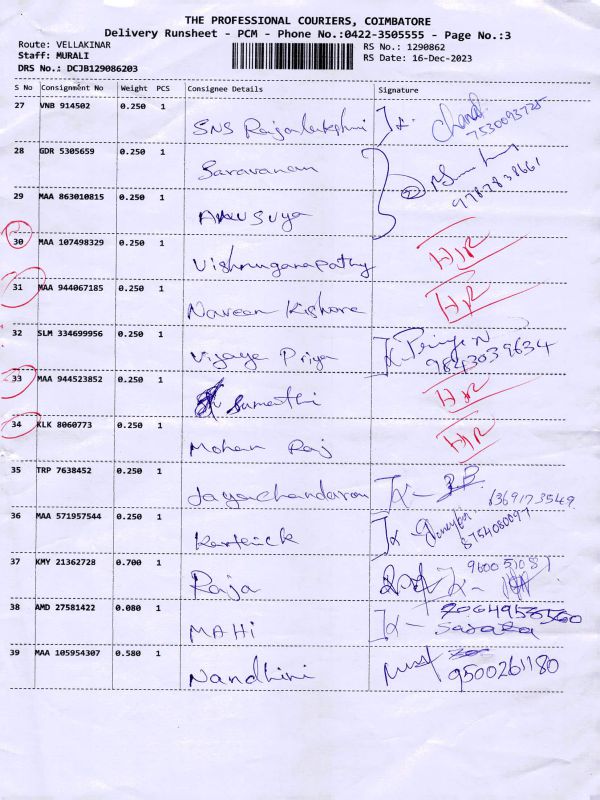 THE PROFESSIONAL COURIERS, COIMBATORE
Delivery Runsheet - PCM - Phone No.:0422-3505555 - Page No.:3
Route: VELLAKINAR RS No.: 1290862
Staff: MURALI RS Date: 16-Dec-2023
DRS No.: DCJB129086203
S No Consignment No Weight PCS Consignee Details Signature
27 VNB 914502 0.250 1 SNS Rajalakshmi
28 GDR 5305659 0.250 1 Saravanan
29 MAA 863010815 0.250 1 Anusuya
30 MAA 107498329 0.250 1 Vishnuganapathy
31 MAA 944067185 0.250 1 Naveen Kishore
32 SLM 334699956 0.250 1 Vijaya Priya
9843039634
33 MAA 944523852 0.250 1 Sumathi
34 KLK 8060773 0.250 1 Mohan Raj
35 TRP 7638452 0.250 1 Jayachandaran
6369173549
36 MAA 571957544 0.250 1 Karthick
8754080097
37 KMY 21362728 0.700 1 Raja
38 AMD 27581422 0.080 1 MAHI
39 MAA 105954307 0.580 1 Nandhini
9500261180